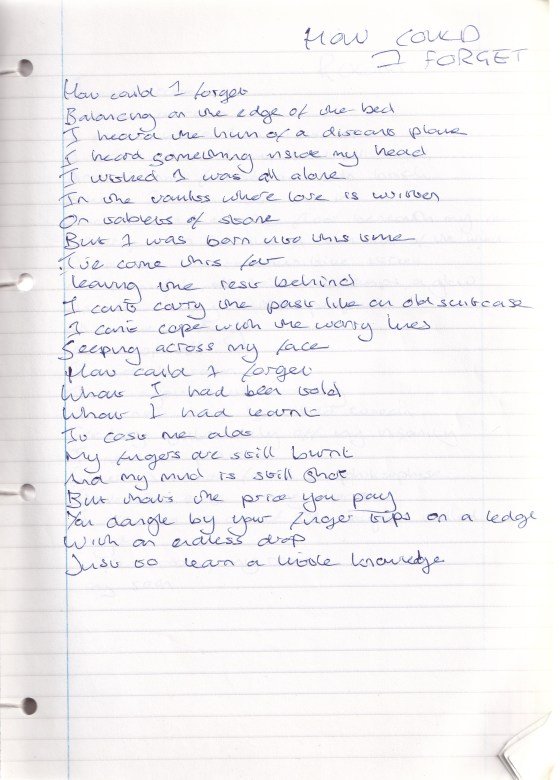 HOW COULD
I FORGET
How could I forget
Balancing on the edge of the bed
I heard the hum of a distant plane
I heard something inside my head
I wished I was all alone
In the vaults where love is written
On tablets of stone
But I was born into this time
I've come this far
Leaving the rest behind
I can't carry the past like an old suitcase
I can't cope with the worry lines
Seeping across my face
How could I forget
What I had been told
What I had learnt
It cost me a lot
My fingers are still burnt
And my mind is still shot
But that's the price you pay
You dangle by your finger tips on a ledge
With an endless drop
Just to learn a little knowledge